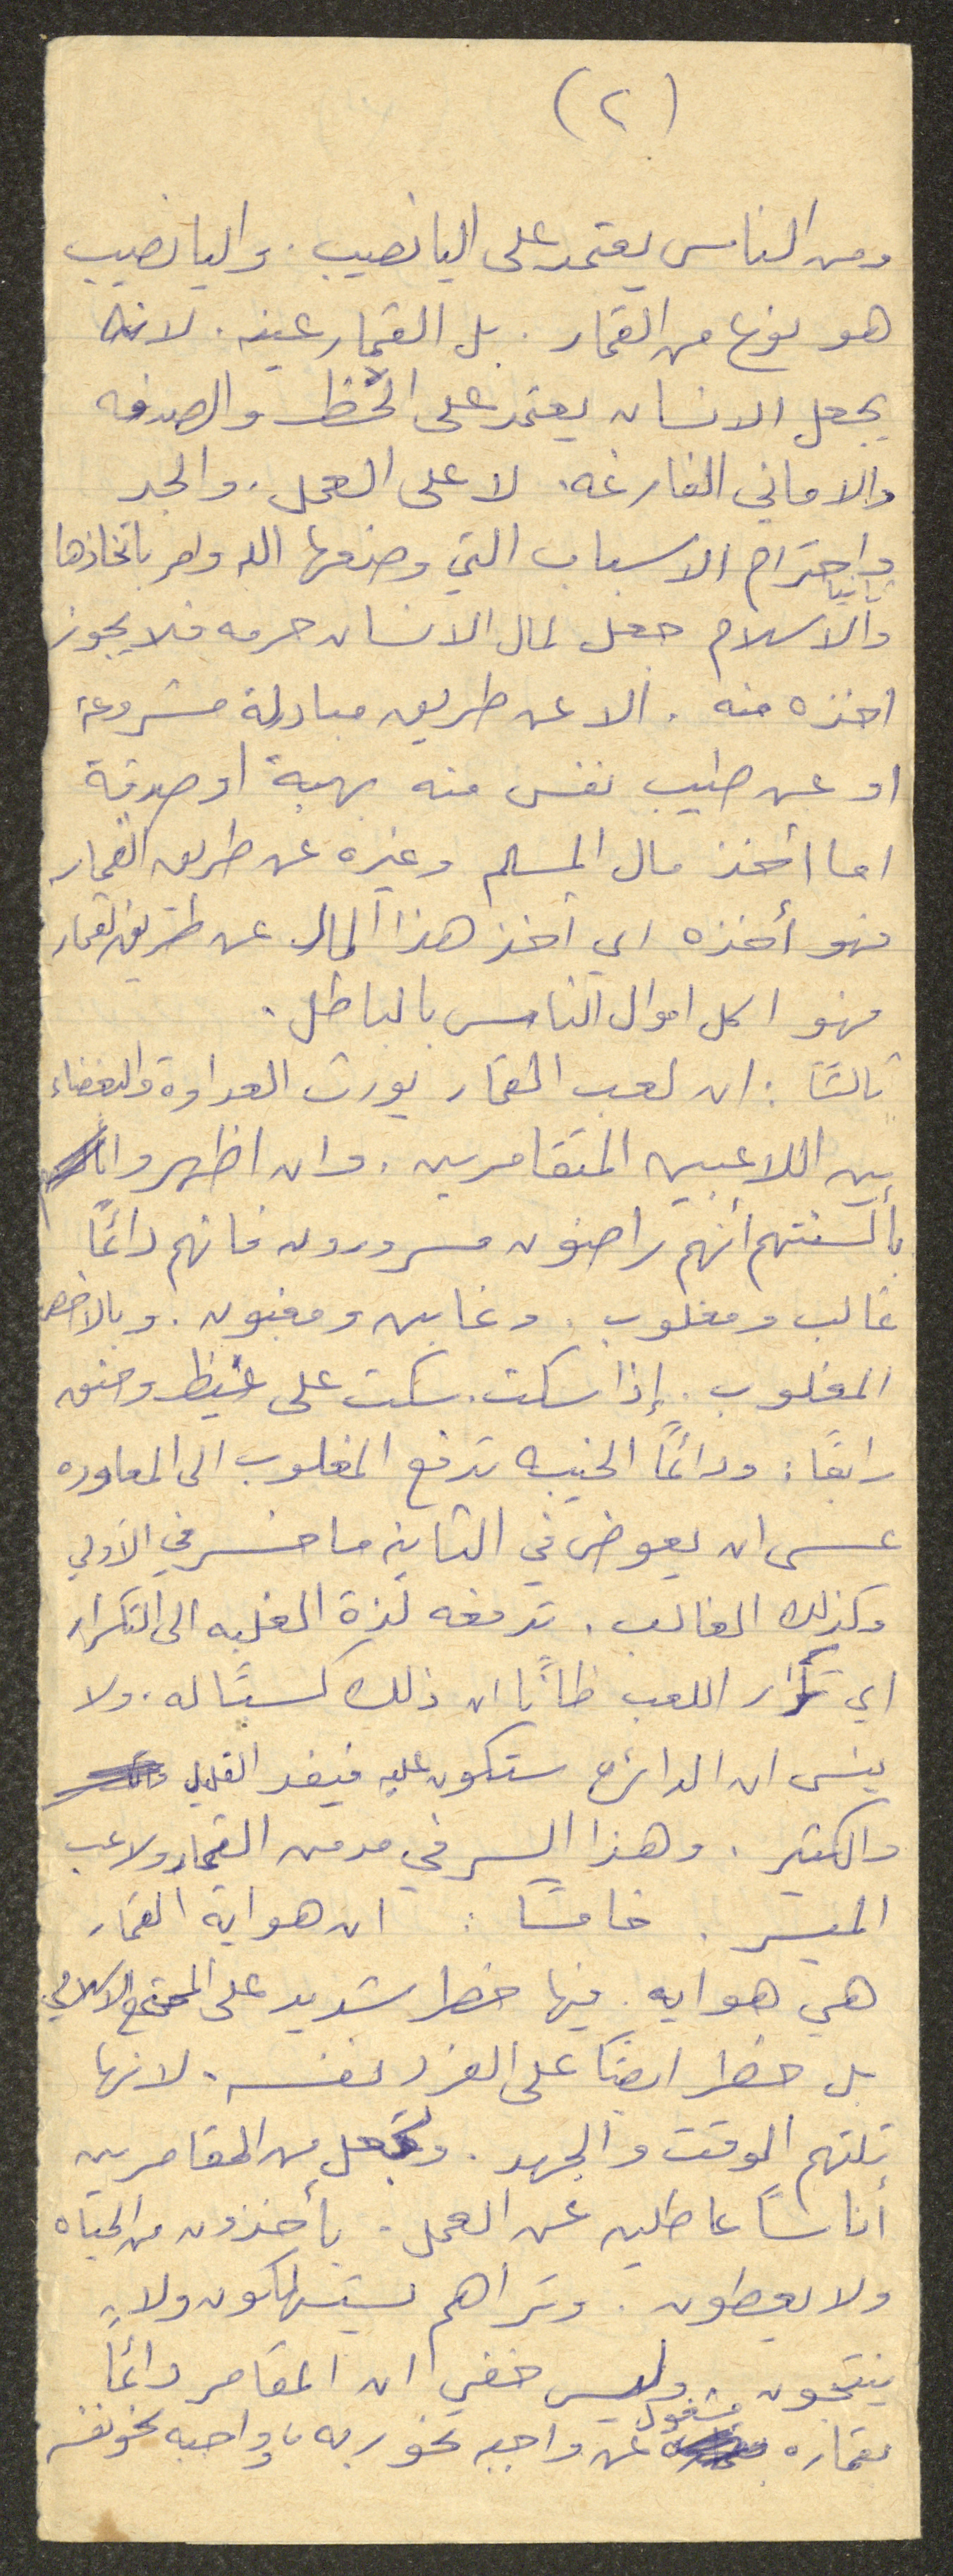 (٢)
ومن الناس يعتمد على اليانصيب. واليانصيب
هو نوع من القمار. بل القمار عينه. لانه
يجعل الانسان يعتمد على الحظ والصدفه
والاماني الفارغه. لا على العمل. والجد
واحترام الاسباب التي وضعها الله وامر باتخاذها
ثانيا
والاسلام جعل لمال الانسان حرمه فلا يجوز
اخذه منه. الا عن طريق مبادلة مشروعة
او عن طيب نفس منه بهبة او صدقة
اما أخذ مال المسلم وغيره عن طريق القمار
فهو أخذه اي اخذ هذا المال عن طريق القمار
فهو اكل اموال الناس بالباطل.
ثالثًا: ان لعب القمار يورث العداوة والبغضاء
بين اللاعبين المتقامرين. وان اظهروا
بألسنتهم أنهم راضون مسرورون فانهم دائمًا
غالب ومغلوب. وغابن ومغبون. وبالاخص
المغلوب. إذا سكت. سكت على غيظ وحنق
رابعًا: ودائمًا الخيبه تدفع المغلوب الى المعاوده
عسى ان يعوض في الثانيه ما خسر في الأولى
وكذلك الغالب. تدفعه لذة الغلبه الى التكرار
اي تكرار اللعب ظانًا ان ذلك كسبًا له. ولا
ينسى ان الدائرة ستكون عليه فيفقد القليل
والكثير. وهذا السر في مدمن القمار ولاعب
الميسر. خامسًا: ان هواية القمار
هي هوايه. فيها خطر شديد على المجتمع الاسلامي.
بل خطر ايضًا على الفرد نفسه. لانها
تلتهم الوقت والجهد. وتجعل من المقامرين
أناسًا عاطلين عن العمل. يأخذون من الحياه
ولا يعطون. وتراهم يستهلكون ولا
ينتجون. وليس خفي ان المقامر دائمًا
مشغول
بقماره عن واجبه نحو ربه وواجبه نحو نفسه